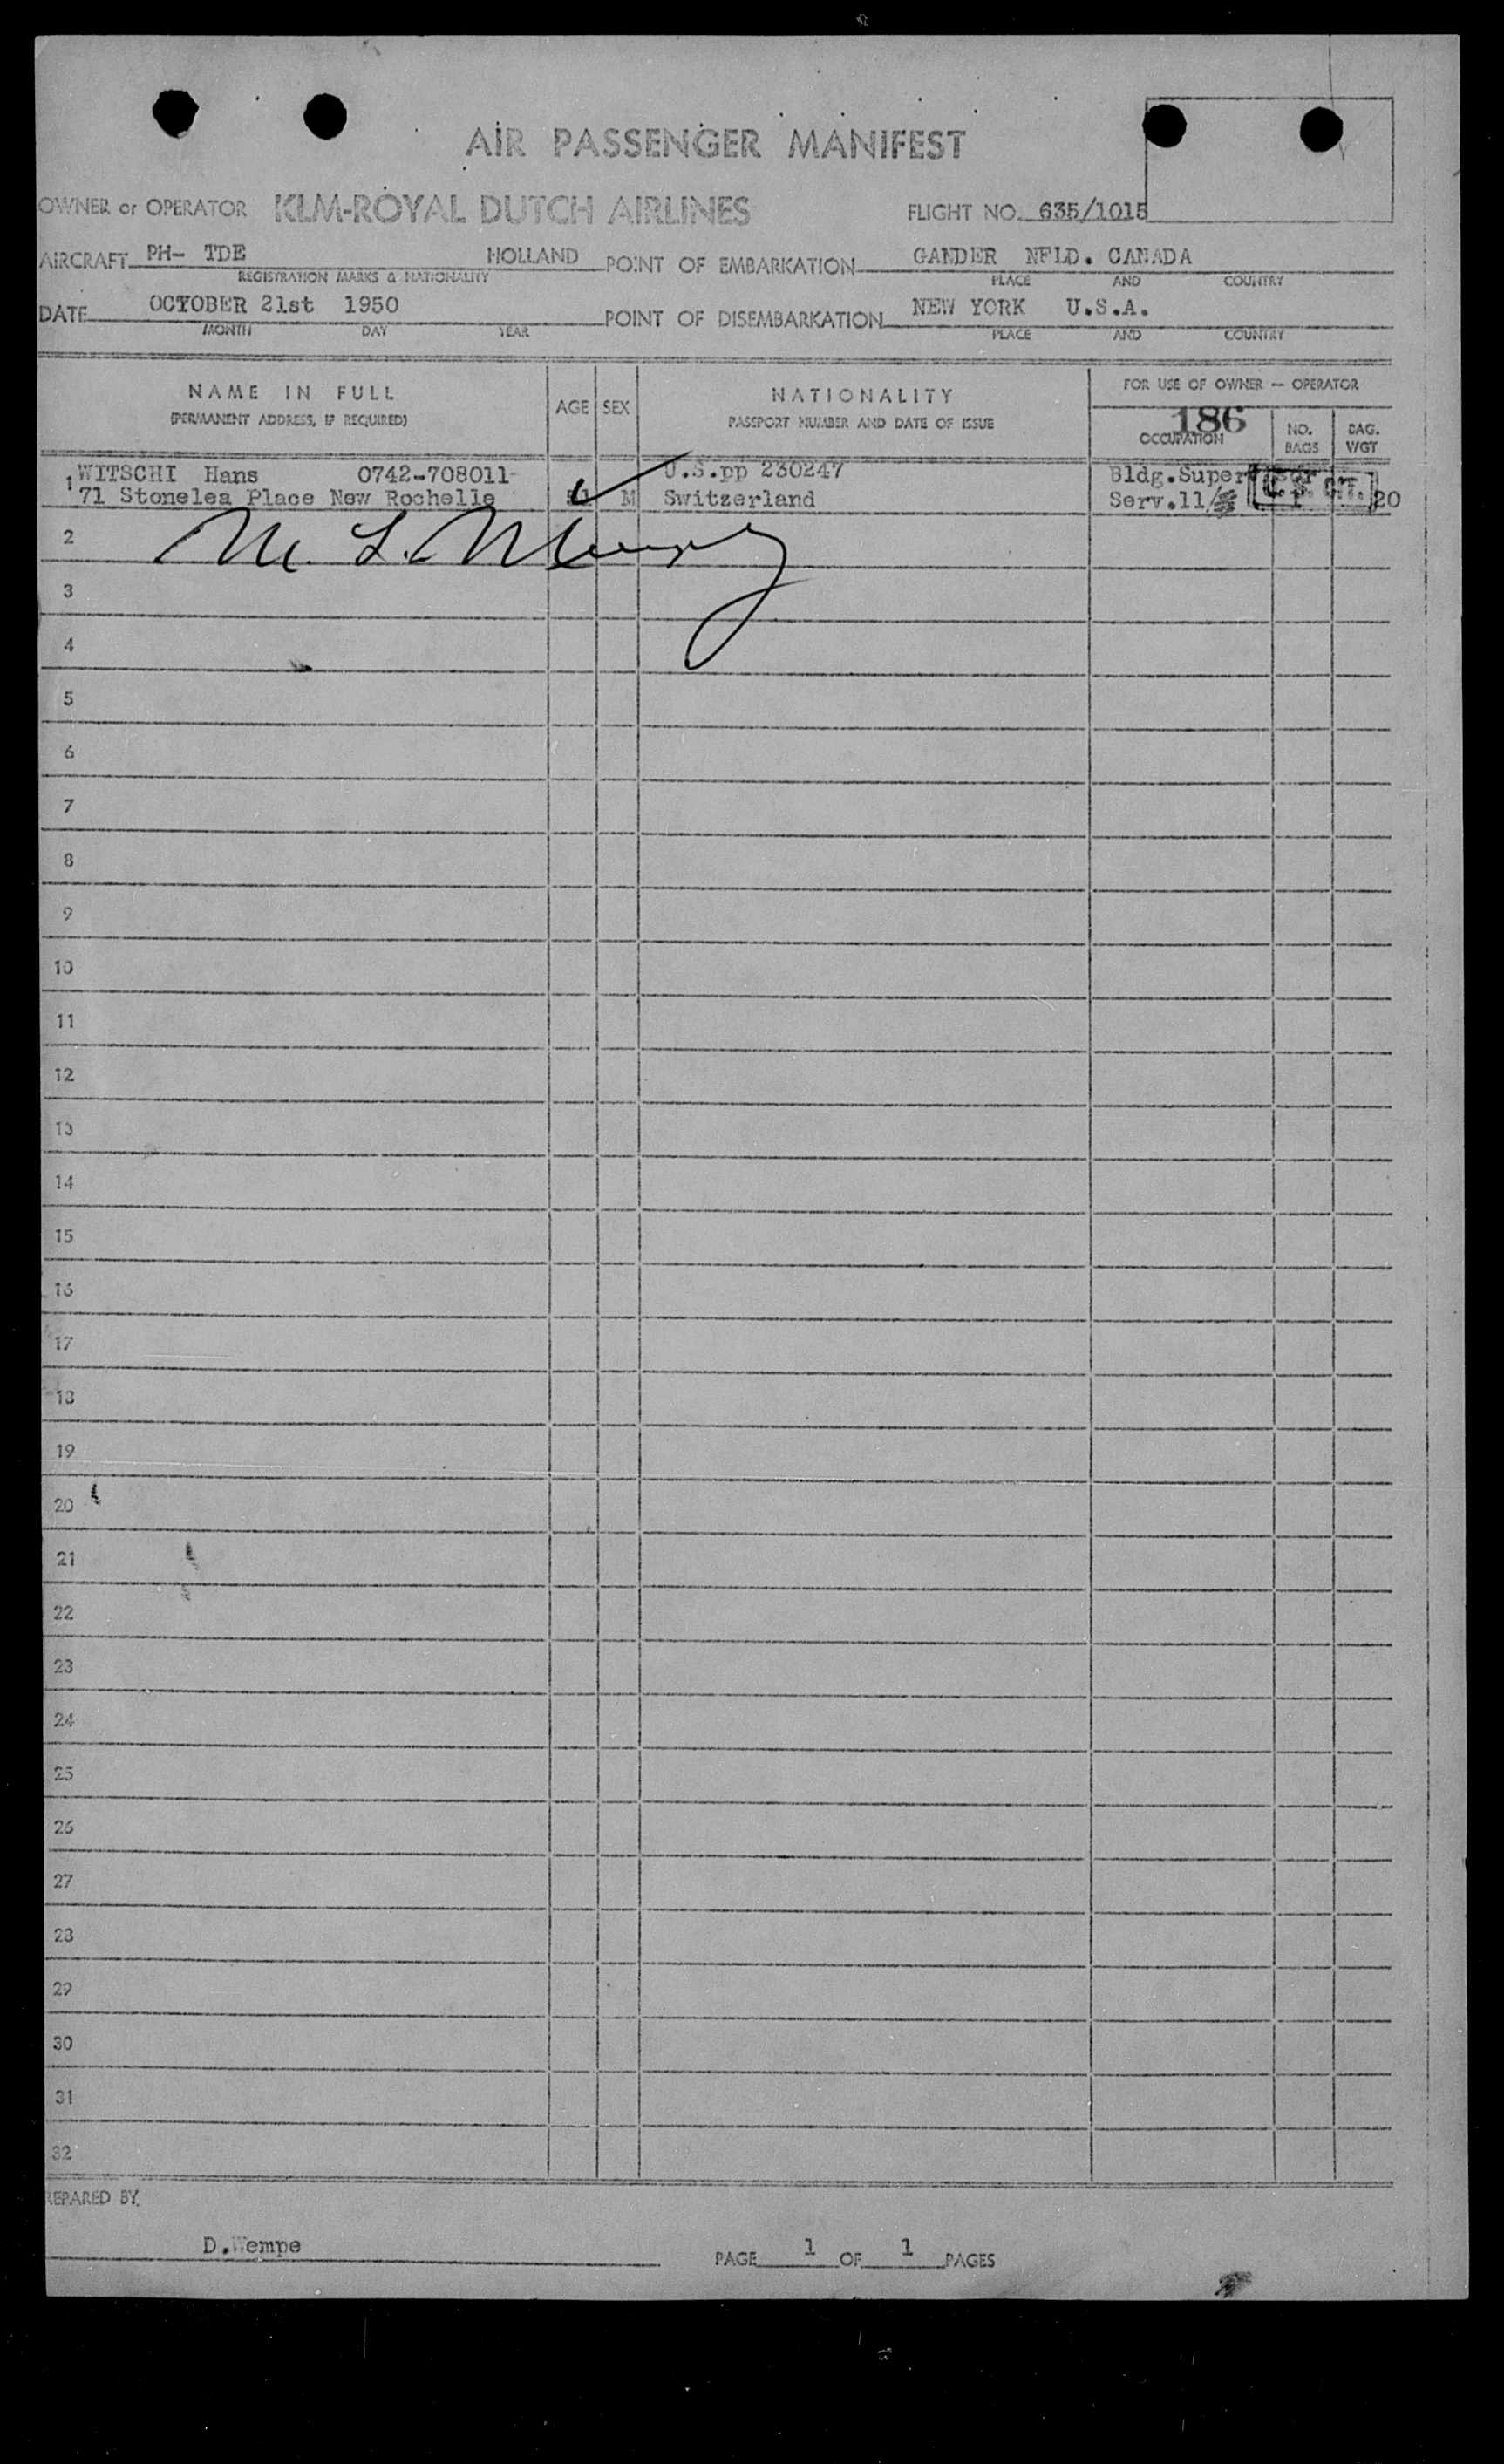 AIR PASSENGER MANIFEST
OWNER or OPERATOR KLM-ROYAL DUTCH AIRLINES FLIGHT NO. 635/1015
AIRCRAFT PH- TDE HOLLAND POINT OF EMBARKATION GANDER NFLD. CANADA
REGISTRATION MARKS & NATIONALITY PLACE AND COUNTRY
DATE OCTOBER 21st 1950 POINT OF DISEMBARKATION NEW YORK U.S.A.
MONTH DAY YEAR PLACE AND COUNTRY
NAME IN FULL
(PERMANENT ADDRESS, IF REQUIRED)
AGE SEX
NATIONALITY
PASSPORT NUMBER AND DATE OF ISSUE
FOR USE OF OWNER — OPERATOR
186
OCCUPATION
NO. BAGS
BAG. WGT
1 WITSCHI Hans 0742-708011 U.S.pp 230247 Bldg.Super
71 Stonelea Place New Rochelle M Switzerland Serv.11/ 20
2 M. L.
3
4
5
6
7
8
9
10
11
12
13
14
15
16
17
18
19
20
21
22
23
24
25
26
27
28
29
30
31
32
REPARED BY
D.Wempe
PAGE 1 OF 1 PAGES